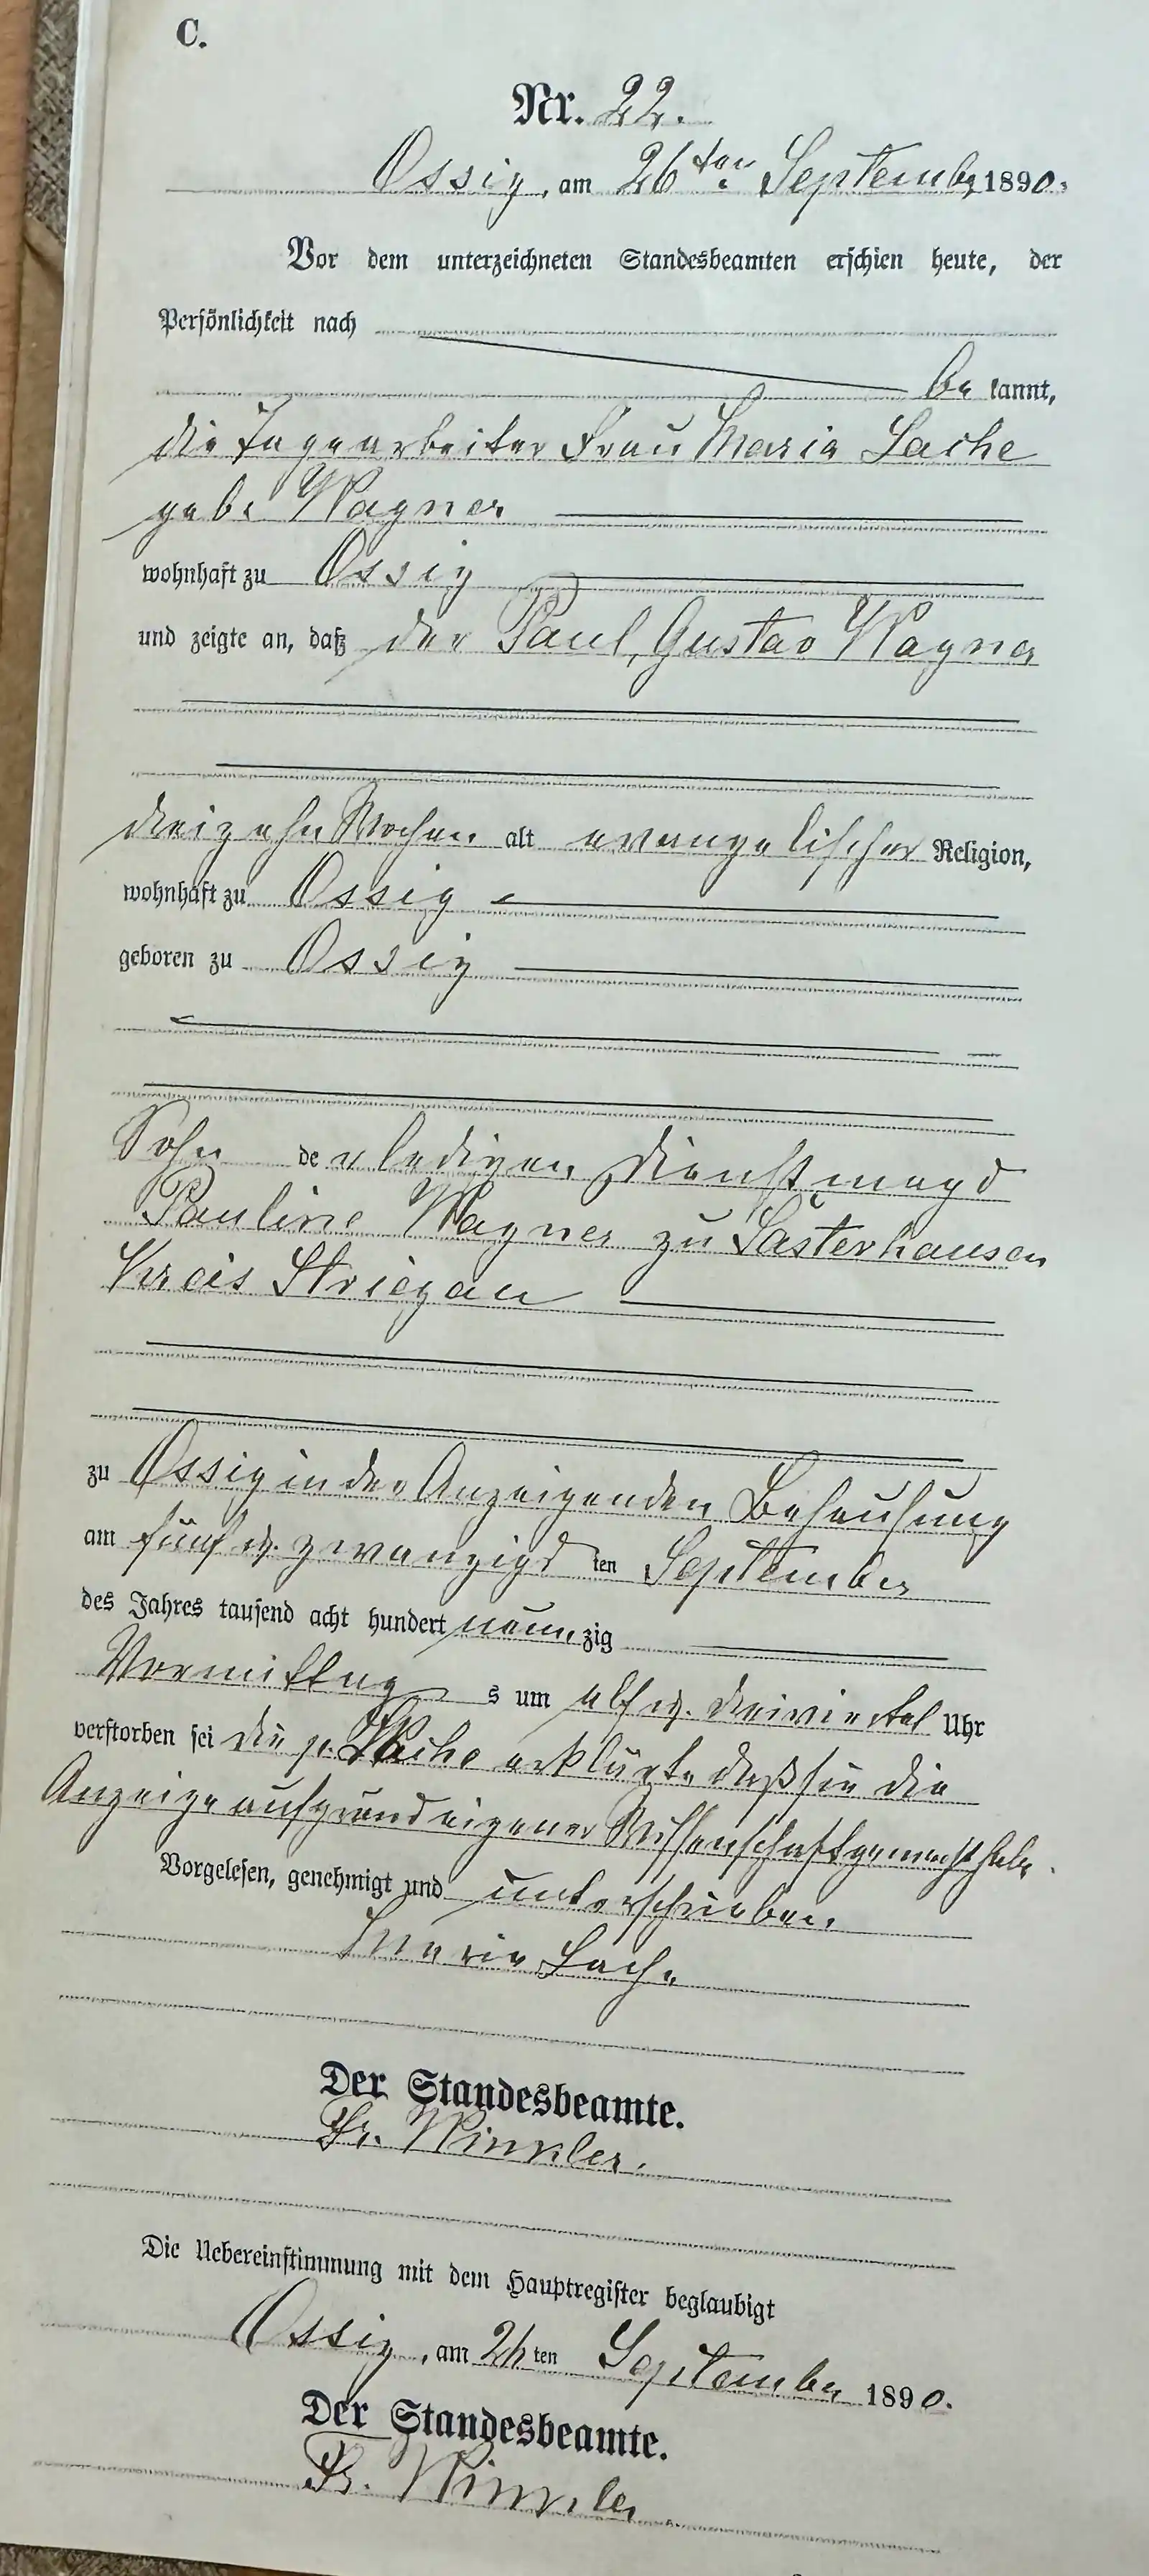 C.
Nr. 22.
Ossig, am 26ten September 1890.
Vor dem unterzeichneten Standesbeamten erschien heute, der
Persönlichkeit nach
be kannt,
die Tagearbeiter Frau Maria Lache
geb. Wagner
wohnhaft zu Ossig
und zeigte an, daß der Paul, Gustav Wagner
dreizehn Wochen alt evangelischer Religion,
wohnhaft zu Ossig
geboren zu Ossig
Sohn der ledigen Dienstmagd
Pauline Wagner zu Lasterhausen
Kreis Striegau
zu Ossig in der Anzeigenden Behausung
am fünf u. zwanzigs ten September
des Jahres tausend acht hundert neun zig
Vormittag s um elf u. dreiviertel Uhr
verstorben sei die p. Lache erklärte daß sie die
Anzeige auf grund eigener Wissenschaft gemacht habe.
Vorgelesen, genehmigt und unterschrieben
Maria Lache
Der Standesbeamte.
Fr. Winkler.
Die Uebereinstimmung mit dem Hauptregister beglaubigt
Ossig, am 26ten September 1890.
Der Standesbeamte.
Fr. Winkler